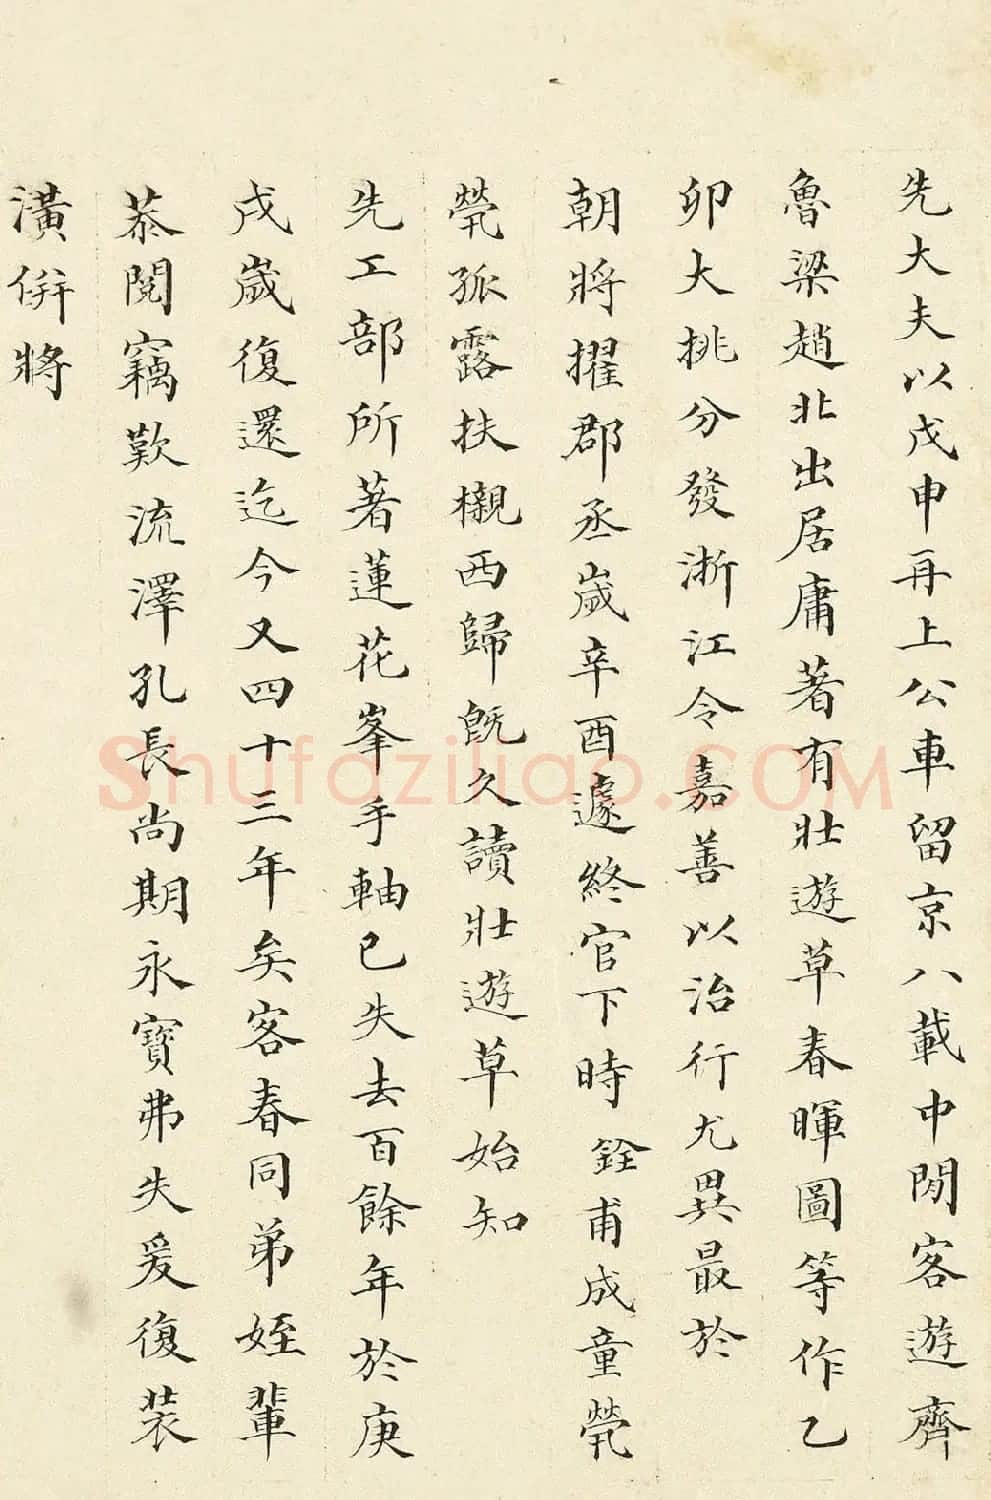 先大夫以戊申再上公車留京八載中閒客遊齊
魯梁趙北出居庸著有壯遊草春暉圖等作乙
卯大挑分發浙江令嘉善以治行尤異最於
朝將擢郡丞歲辛酉遽終官下時銓甫成童煢
煢孤露扶櫬西歸旣久讀壯遊草始知
先工部所著蓮花峯手軸已失去百餘年於庚
戌歲復還迄今又四十三年矣客春同弟姪輩
恭閱竊歎流澤孔長尚期永寶弗失爰復裝
潢併將
Shufaziliao.COM